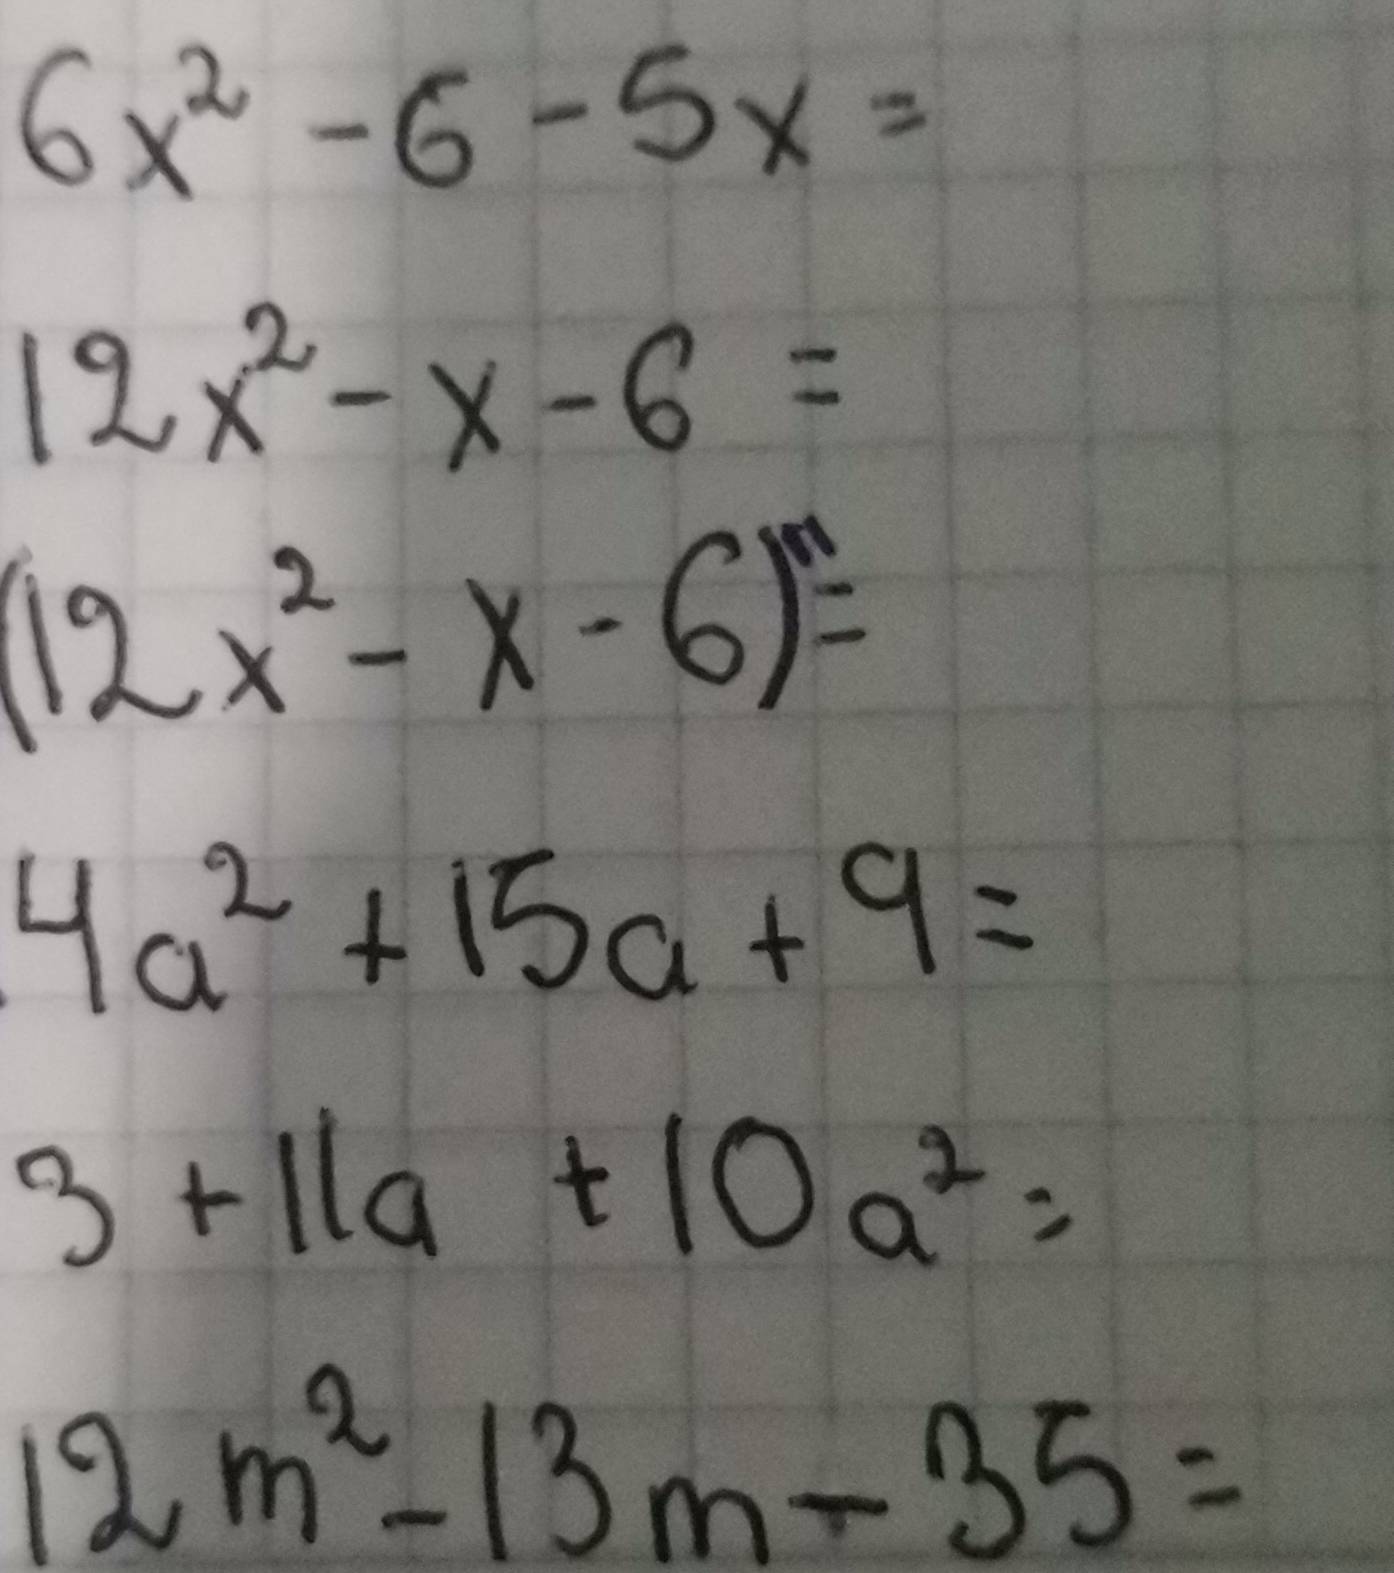 6x² - 6 - 5x =
12x² - x - 6 =
(12x² - x - 6)ⁿ =
4a² + 15a + 9 =
3 + 11a + 10a² =
12m² - 13m - 35 =